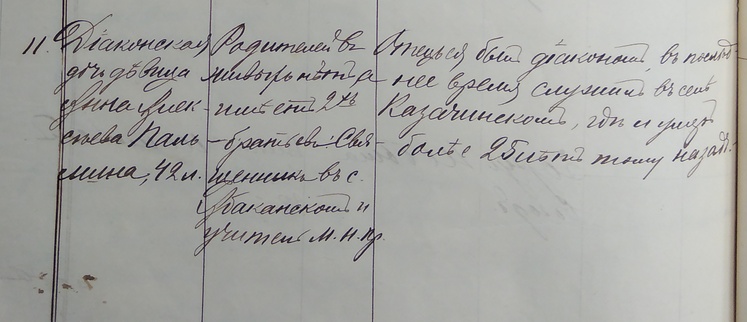 11. Дiаконская
дочь дѣвица
Анна Алек-
сѣева Паль-
мина, 42 л.
Родителей въ
живыхъ нѣтъ, а
имѣетъ 2хъ
братьевъ: Свя-
щенника въ с.
Абаканскомъ и
учителя М. Н. Пр.
Отецъ ея былъ дiакономъ, въ послѣд-
нее время служилъ въ селѣ
Казачинскомъ, гдѣ и умеръ
болѣе 25 лѣтъ тому назадъ.